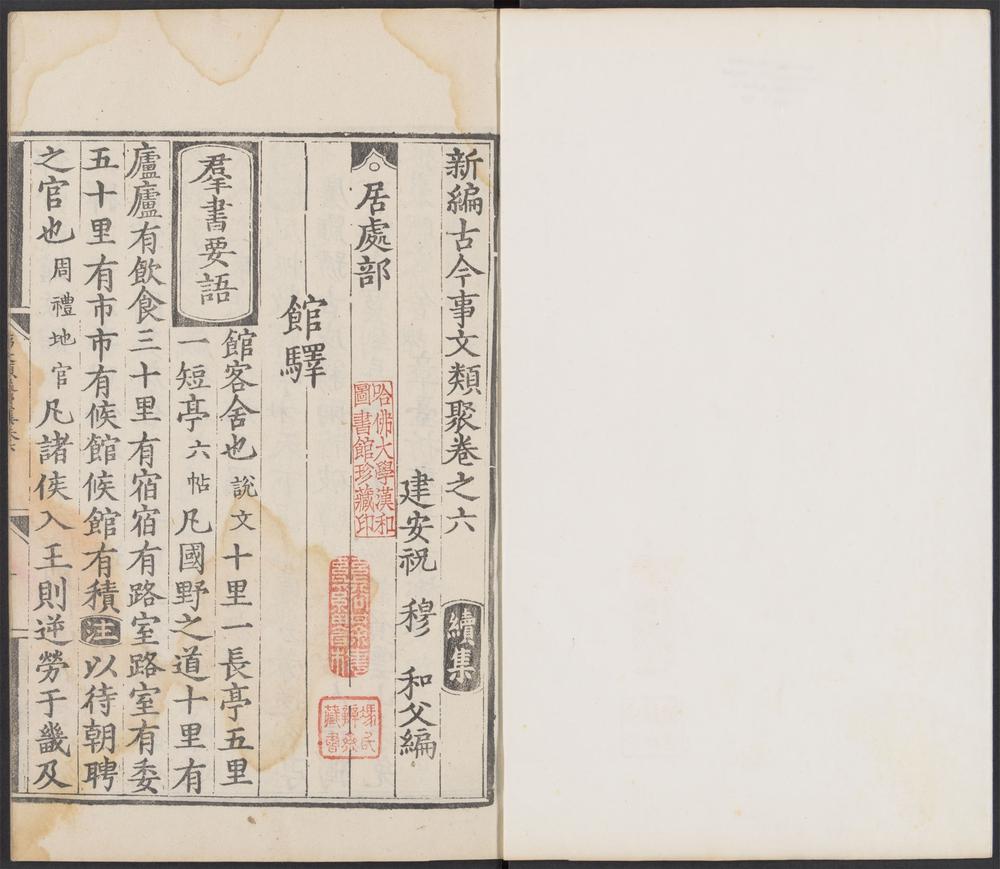 新編古今事文類聚卷之六 續集
建安祝 穆 和父編
居處部
館驛
羣書要語 館客舍也說文十里一長亭五里
一短亭六帖凡國野之道十里有
廬廬有飲食三十里有宿宿有路室路室有委
五十里有市市有候館候館有積注以待朝聘
之官也周禮地官凡諸侯入王則逆勞于畿及
哈佛大學漢和
圖書館珍藏印
馮氏
辨齋
藏書